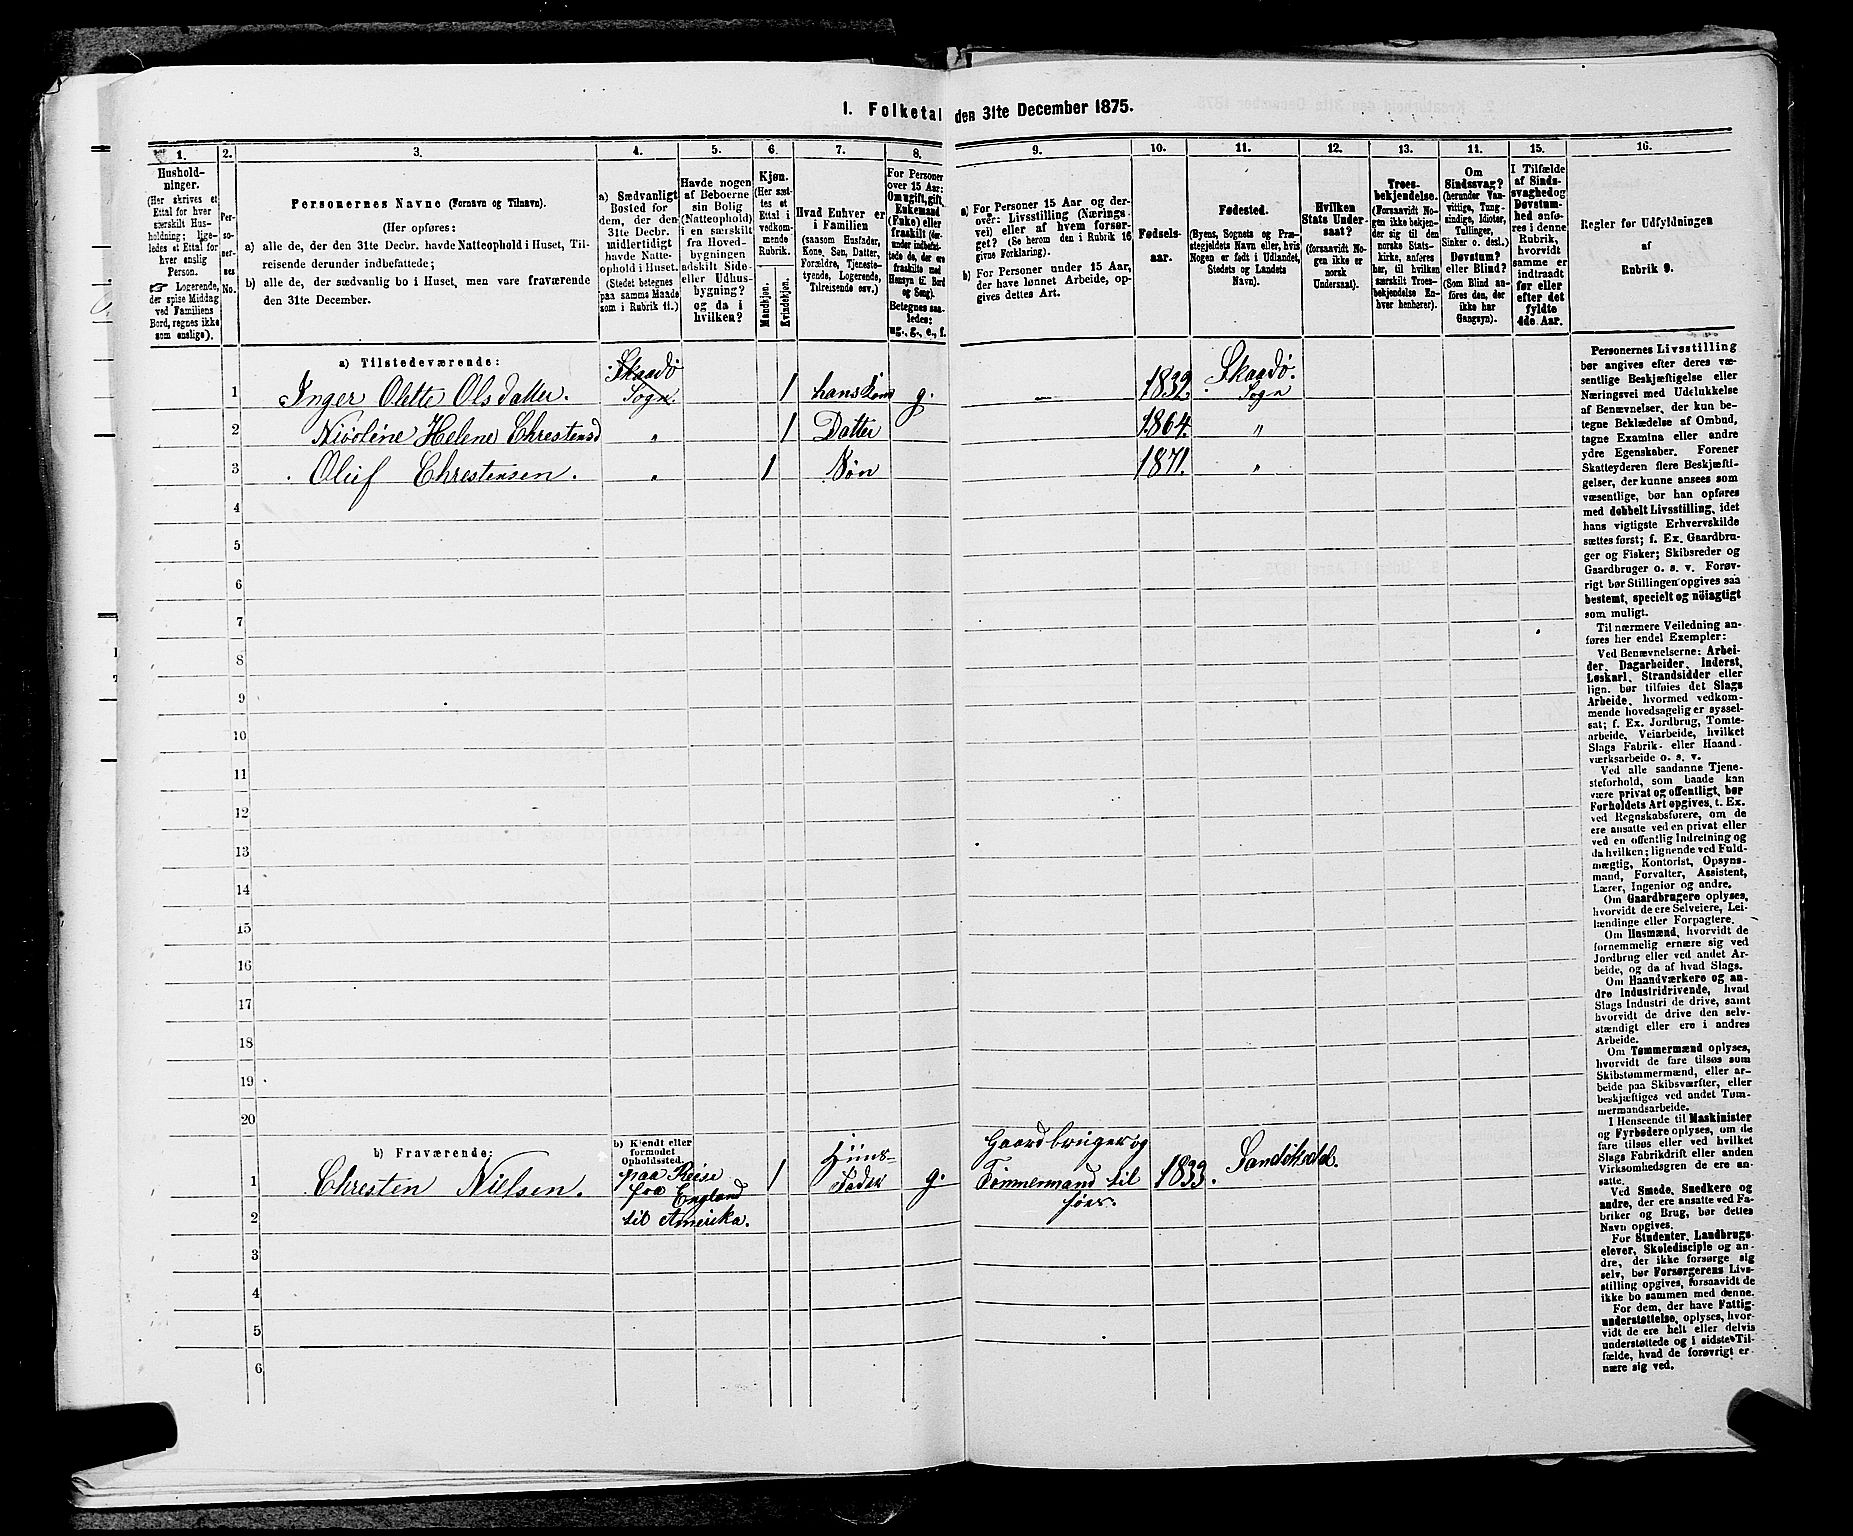 1. Folketal den 31te December 1875.
1.
2.
3.
4.
5.
6.
7.
8.
9.
10.
11.
12.
13.
11.
15.
16.
Hushold-
ninger.
(Her skrives et
Ettal for hver
særskilt Hus-
holdning; lige-
ledes et Ettal for
hver enslig
Person.
☞ Logerende,
der spise Middag
ved Familiens
Bord, regnes ikke
som enslige).
Per-
so-
ner-
nes
No.
Personernes Navne (Fornavn og Tilnavn).
(Her opføres:
a) alle de, der den 31te Decbr. havde Natteophold i Huset, Til-
reisende derunder indbefattede;
b) alle de, der sædvanlig bo i Huset, men vare fraværende
den 31te December.
a) Sædvanligt
Bosted for
dem, der den
31te Decbr.
midlertidigt
havde Natte-
ophold i Huset.
(Stedet betegnes
paa samme Maade
som i Rubrik 11.)
Havde nogen
af Beboerne
sin Bolig
(Natteophold)
i en særskilt
fra Hoved-
bygningen
adskilt Side-
eller Udhus-
bygning?
og da i
hvilken?
Kjøn.
(Her sæt-
tes et
Ettal i
vedkom-
mende
Rubrik.
Mandkjøn.
Kvindekjøn.
Hvad Enhver er
i Familien
(saasom Husfader,
Kone, Søn, Datter,
Forældre, Tjeneste-
tyende, Logerende,
Tilreisende osv.)
For Personer
over 15 Aar:
Om ugift, gift,
Enkemand
(Enke) eller
fraskilt (her-
under indbefat-
tede de, der ere
fraskilte med
Hensyn til Bord
og Seng).
Betegnes saa-
ledes:
ug., g., e., f.
a) For Personer 15 Aar og der-
over: Livsstilling (Nærings-
vei) eller af hvem forsør-
get? (Se herom den i Rubrik 16
givne Forklaring).
b) For Personer under 15 Aar,
der have lønnet Arbeide, op-
gives dettes Art.
Fødsels-
aar.
Fødested.
(Byens, Sognets og Præ-
stegjeldets Navn eller, hvis
Nogen er født i Udlandet,
Stedets og Landets
Navn).
Hvilken
Stats Under-
saat?
(forsaavidt No-
gen ikke er
norsk
Undersaat).
Troes-
bekjendelse.
(Forsaavidt No-
gen ikke bekjen-
der sig til den
norske Stats-
kirke, anføres
her, til hvilken
særskilt Troes-
bekjendelse En-
hver henhører).
Om
Sindssvag?
(herunder Van-
vittige, Tung-
sindige, Idioter,
Tullinger,
Sinker o. desl.)
Døvstum?
eller Blind?
(Som Blind an-
føres den, der
ikke har
Gangsyn).
I Tilfælde
af Sinds-
svaghed og
Døvstum-
hed anfø-
res i denne
Rubrik,
hvorvidt
samme er
indtraadt
før eller
efter det
fyldte
4de Aar.
Regler før Udfyldningen
af
Rubrik 9.
a) Tilstedeværende:
1 Inger Olette Olsdatter. Skaadø Sogn. 1 hans Kone g. 1832. Skaadø. Sogn
2 Nicoline Helene Chrestensd " 1 Datter 1864. "
3 Oluf Chrestensen. " 1 Søn 1871. "
4
5
6
7
8
9
10
11
12
13
14
15
16
17
18
19
20
b) Fraværende:
b) Kjendt eller
formodet
Opholdssted.
1 Chresten Nielsen. paa Reise fra England 1 Huus-fader g. Gaardbruger og Tømmermand til søes. 1833.
2 til Amerika.
3
4
5
6
Personernes Livsstilling
bør angives efter deres væ-
sentlige Beskjæftigelse eller
Næringsvei med Udelukkelse
af Benævnelser, der kun be-
tegne Beklædelse af Ombud,
tagne Examina eller andre
ydre Egenskaber. Forener
Skatteyderen flere Beskjæfti-
gelser, der kunne ansees som
væsentlige, bør han opføres
med dobbelt Livsstilling, idet
hans vigtigste Erhvervskilde
sættes først; f. Ex. Gaardbru-
ger og Fisker; Skibsreder og
Gaardbruger o. s. v. Forøv-
rigt bør Stillingen opgives saa
bestemt, specielt og nöiagtigt
som muligt.
Til nærmere Veiledning an-
føres her endel Exempler:
Ved Benævnelserne: Arbei-
der, Dagarbeider, Inderst,
Løskarl, Strandsidder eller
lign. bør tilføies det Slags
Arbeide, hvormed vedkom-
mende hovedsagelig er syssel-
sat; f. Ex. Jordbrug, Tomte-
arbeide, Veiarbeide, hvilket
Slags Fabrik- eller Haand-
værksarbeide o. s. v.
Ved alle saadanne Tjene-
steforhold, som baade kan
være privat og offentligt, bør
Forholdets Art opgives, t. Ex.
ved Regnskabsførere, om de
ere ansatte ved en privat eller
ved en offentlig Indretning og
da hvilken; lignende ved Fuld-
mægtig, Kontorist, Opsyns-
mand, Forvalter, Assistent,
Lærer, Ingeniør og andre.
Om Gaardbrugere oplyses,
hvorvidt de ere Selveiere, Lei-
lændinge eller Forpagtere.
Om Husmænd, hvorvidt de
fornemmelig ernære sig ved
Jordbrug eller ved andet Ar-
beide, og da af hvad Slags.
Om Haandværkere og an-
dre Industridrivende, hvad
Slags Industri de drive, samt
hvorvidt de drive den selv-
stændigt eller ere i andres
Arbeide.
Om Tømmermænd oplyses,
hvorvidt de fare tilsøs som
Skibstømmermænd, eller ar-
beide paa Skibsværfter, eller
beskjæftiges ved andet Tøm-
mermandsarbeide.
I Henseende til Maskinister
og Fyrbødere oplyses, om de
fare tilsøs eller ved hvilket
Slags Fabrikdrift eller anden
Virksomhedsgren de ere an-
satte.
Ved Smede, Snedkere og
andre, der ere ansatte ved Fa-
briker og Brug, bør dettes
Navn opgives.
For Studenter, Landbrugs-
elever, Skoledisciple og an-
dre, der ikke forsørge sig
selv, bør Forsørgerens Livs-
stilling opgives, forsaavidt de
ikke bo sammen med denne.
For dem, der have Fattig-
understøttelse, oplyses, hvor-
vidt de ere helt eller delvis
understøttede og i sidste Til-
fælde, hvad de forøvrigt er-
nære sig ved.